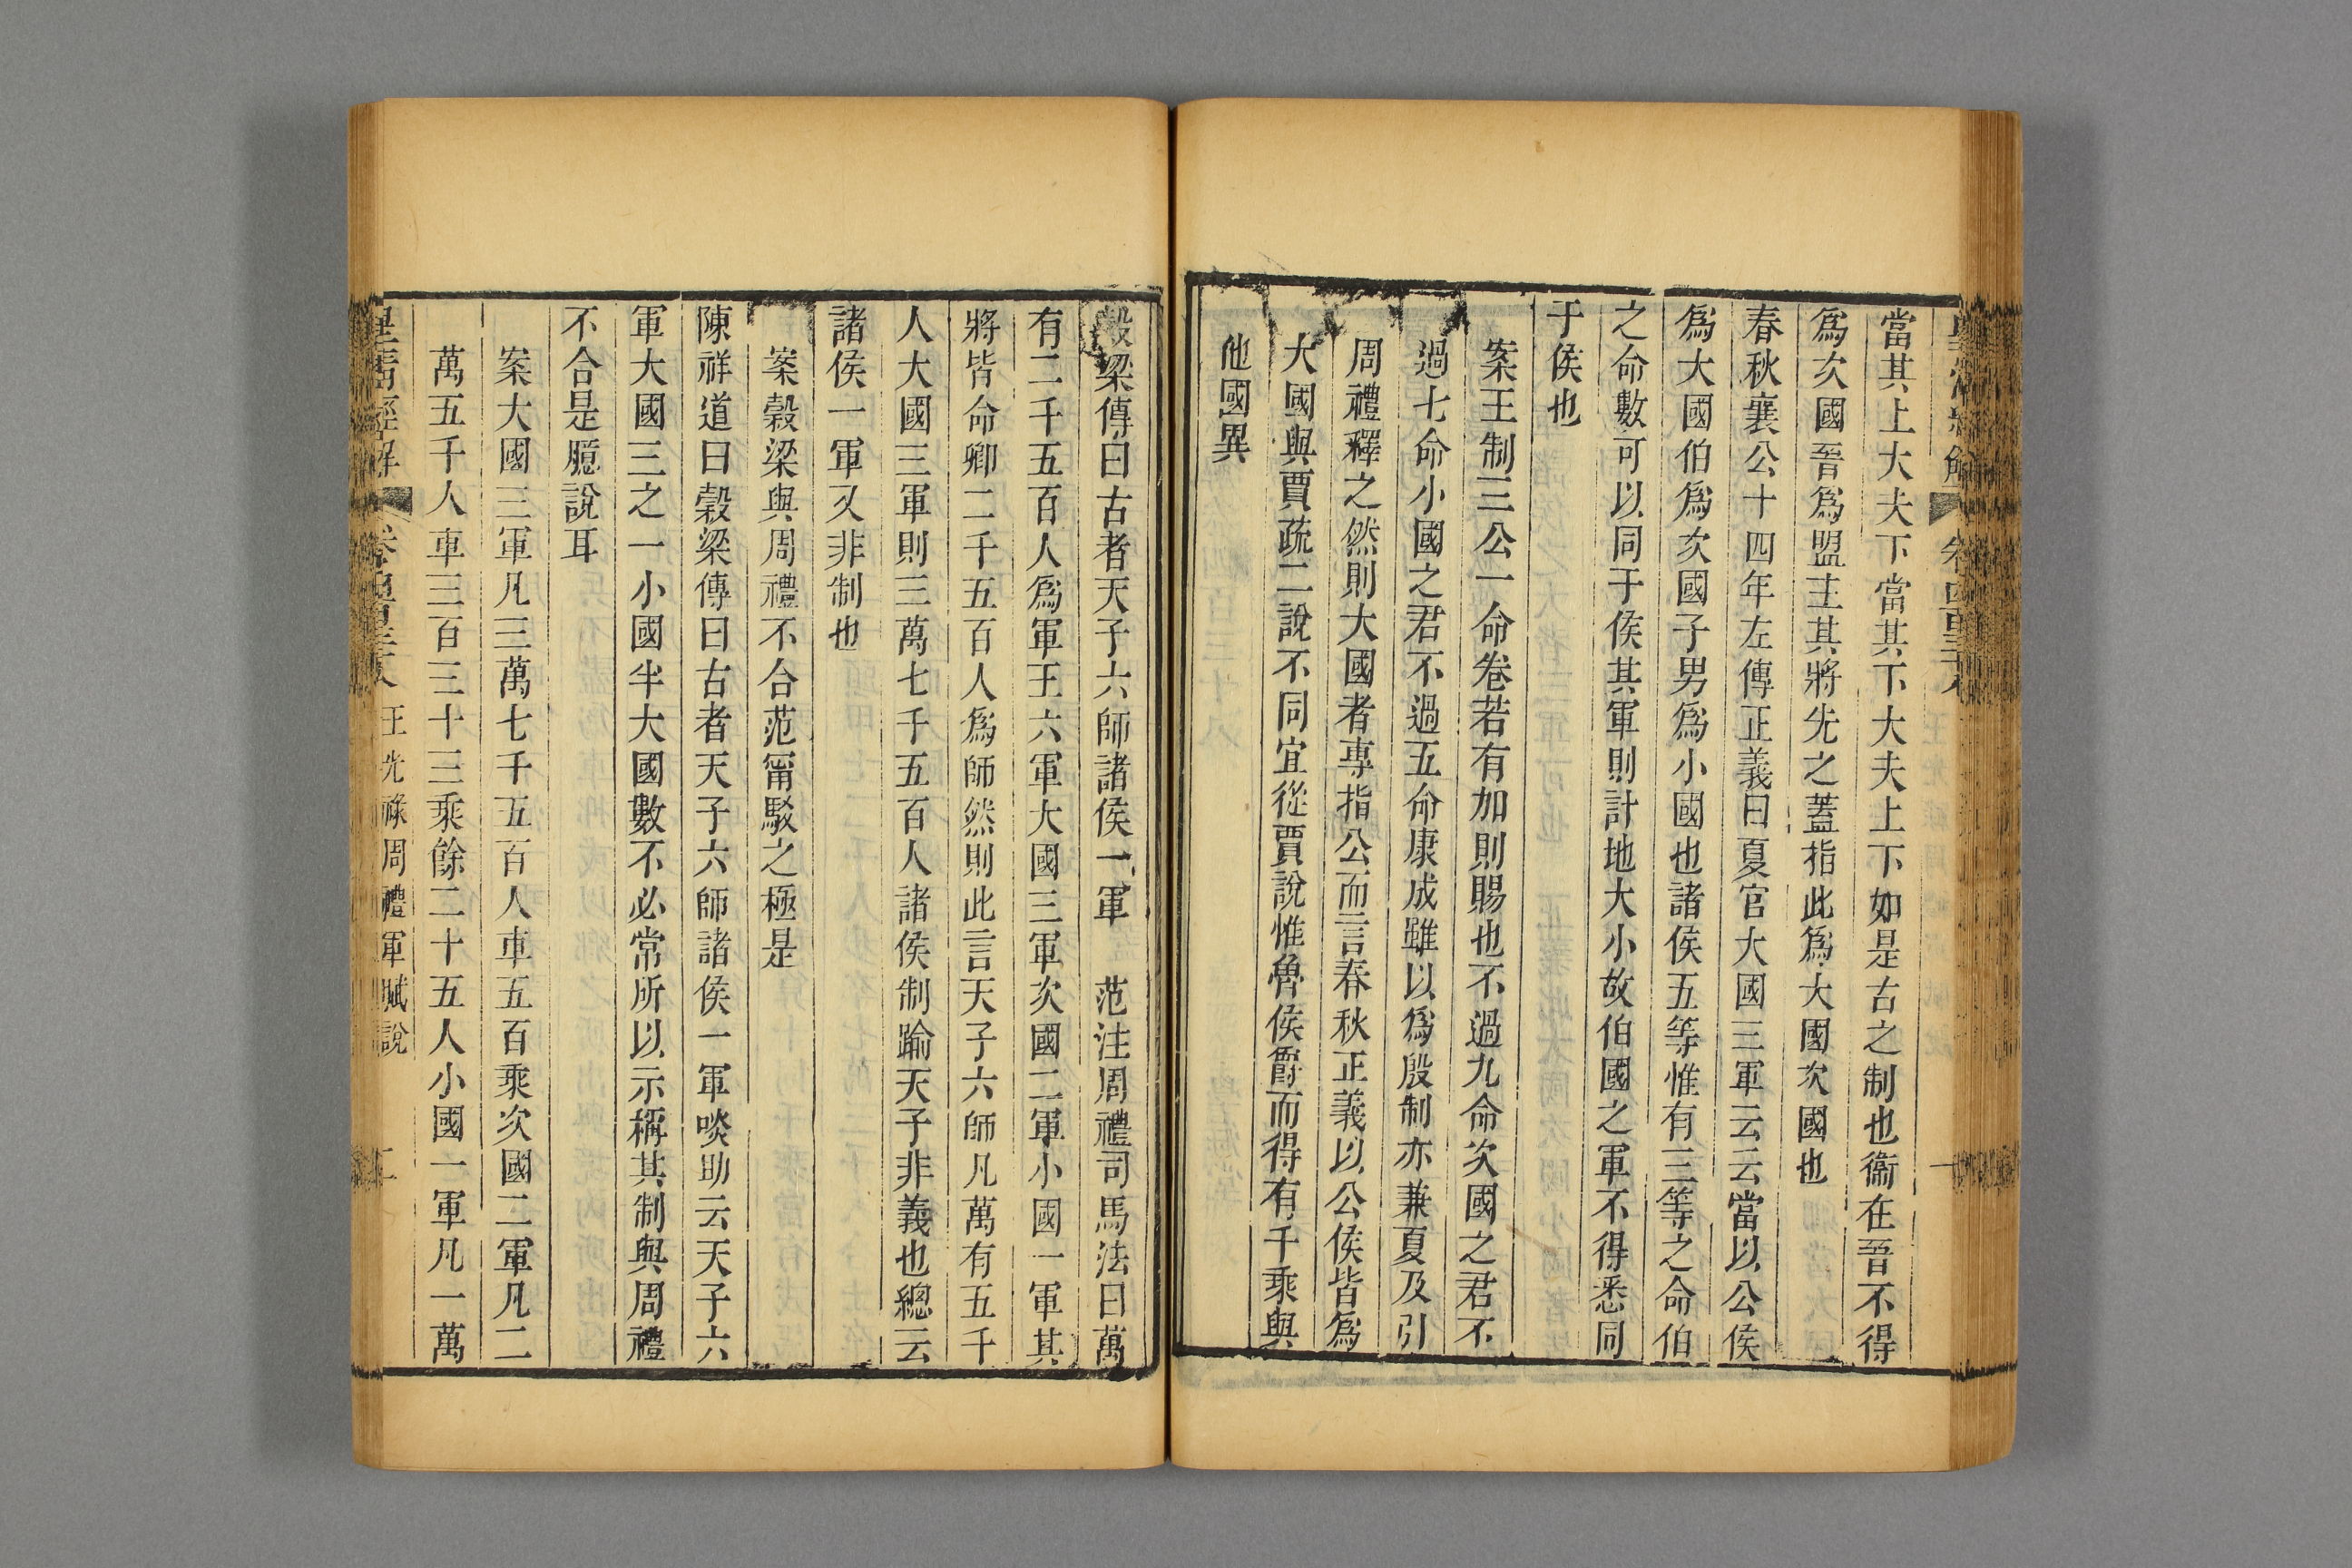 當其上大夫下當其下大夫上下如是古之制也衞在晉不得
爲次國晉爲盟主其將先之蓋指此爲大國次國也
春秋襄公十四年左傳正義曰夏官大國三軍云云當以公侯
爲大國伯爲次國子男爲小國也諸侯五等惟有三等之命伯
之命數可以同于侯其軍則計地大小故伯國之軍不得悉同
于侯也
案王制三公一命卷若有加則賜也不過九命次國之君不
過七命小國之君不過五命康成雖以爲殷制亦兼夏及引
周禮釋之然則大國者專指公而言春秋正義以公侯皆爲
大國與賈疏二說不同宜從賈說惟魯侯爵而得有千乘與
他國異
穀梁傳曰古者天子六師諸侯一軍 范注周禮司馬法曰萬
有二千五百人爲軍王六軍大國三軍次國二軍小國一軍其
將皆命卿二千五百人爲師然則此言天子六師凡萬有五千
人大國三軍則三萬七千五百人諸侯制踰天子非義也總云
諸侯一軍又非制也
案穀梁與周禮不合范甯駁之極是
陳祥道曰穀梁傳曰古者天子六師諸侯一軍啖助云天子六
軍大國三之一小國半大國數不必常所以示稱其制與周禮
不合是臆說耳
案大國三軍凡三萬七千五百人車五百乘次國二軍凡二
萬五千人車三百三十三乘餘二十五人小國一軍凡一萬
皇淸經解 王光祿周禮軍賦說